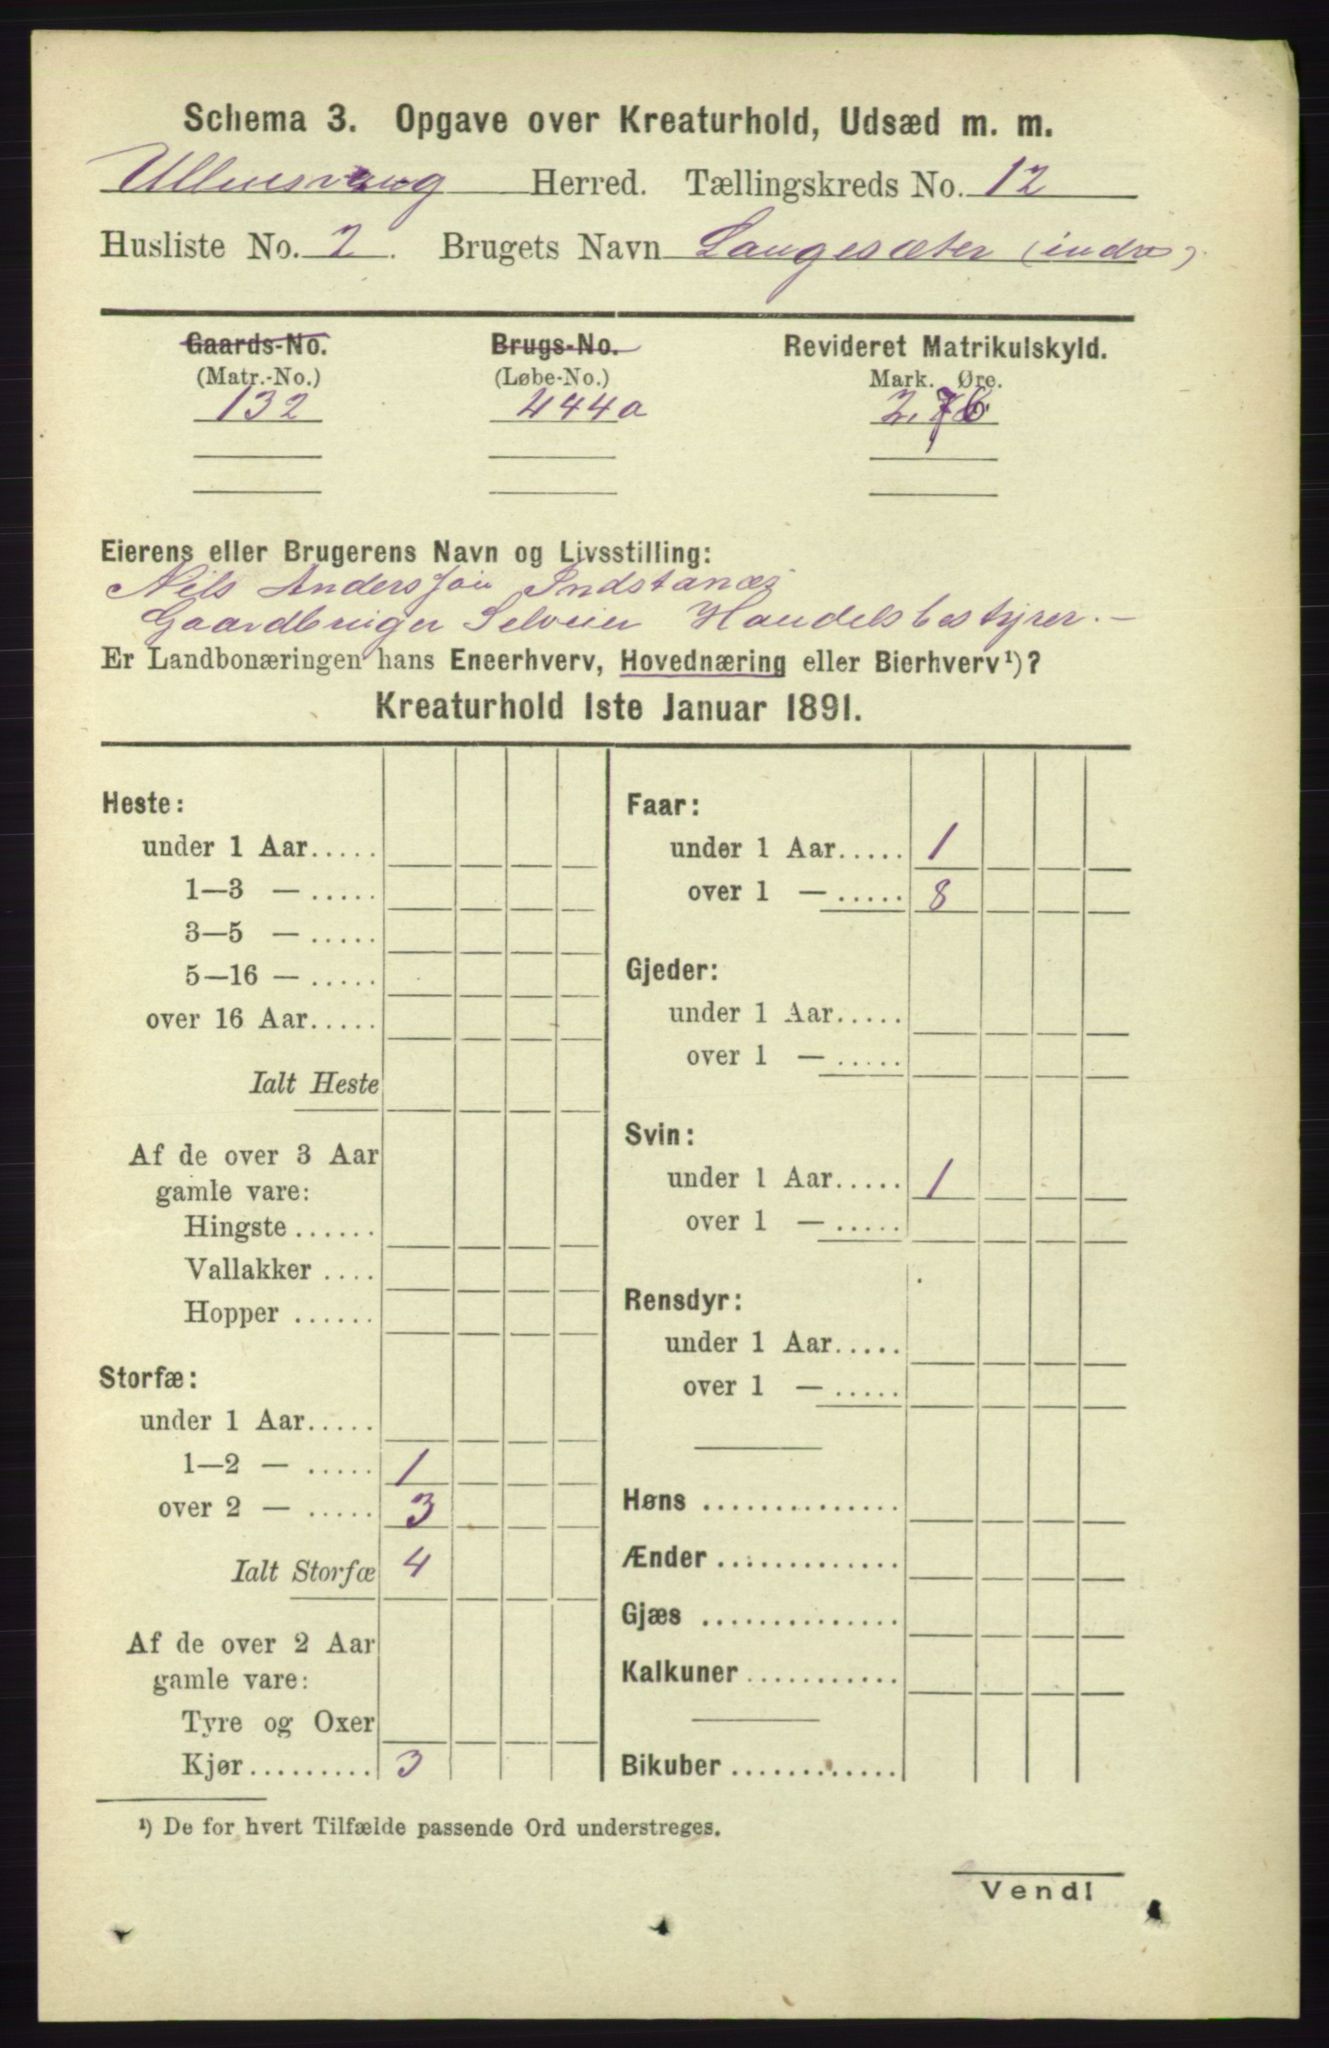 Schema 3. Opgave over Kreaturhold, Udsæd m. m.
Ullensvang Herred. Tællingskreds No. 12
Husliste No. 2. Brugets Navn Langesæter (indre)
Gaards-No. Brugs-No. Revideret Matrikulskyld.
(Matr.-No.) (Løbe-No.) Mark. Øre.
132 444a 2,76
Eierens eller Brugerens Navn og Livsstilling:
Nils Andersson
Gaardbruger Selveier Handelsbestyrer.
Er Landbonæringen hans Eneerhverv, Hovednæring eller Bierhverv¹)?
Kreaturhold 1ste Januar 1891.
Heste:
under 1 Aar.....
1—3 — .....
3—5 — .....
5—16 — .....
over 16 Aar.....
Ialt Heste
Af de over 3 Aar
gamle vare:
Hingste ......
Vallakker ....
Hopper ......
Storfæ:
under 1 Aar.....
1—2 — ..... 1
over 2 — ..... 3
Ialt Storfæ 4
Af de over 2 Aar
gamle vare:
Tyre og Oxer
Kjør......... 3
Faar:
under 1 Aar..... 1
over 1 — ..... 8
Gjeder:
under 1 Aar.....
over 1 — .....
Svin:
under 1 Aar..... 1
over 1 — .....
Rensdyr:
under 1 Aar.....
over 1 — .....
Høns ..............
Ænder .............
Gjæs ..............
Kalkuner ...........
Bikuber ............
¹) De for hvert Tilfælde passende Ord understreges.
Vend!